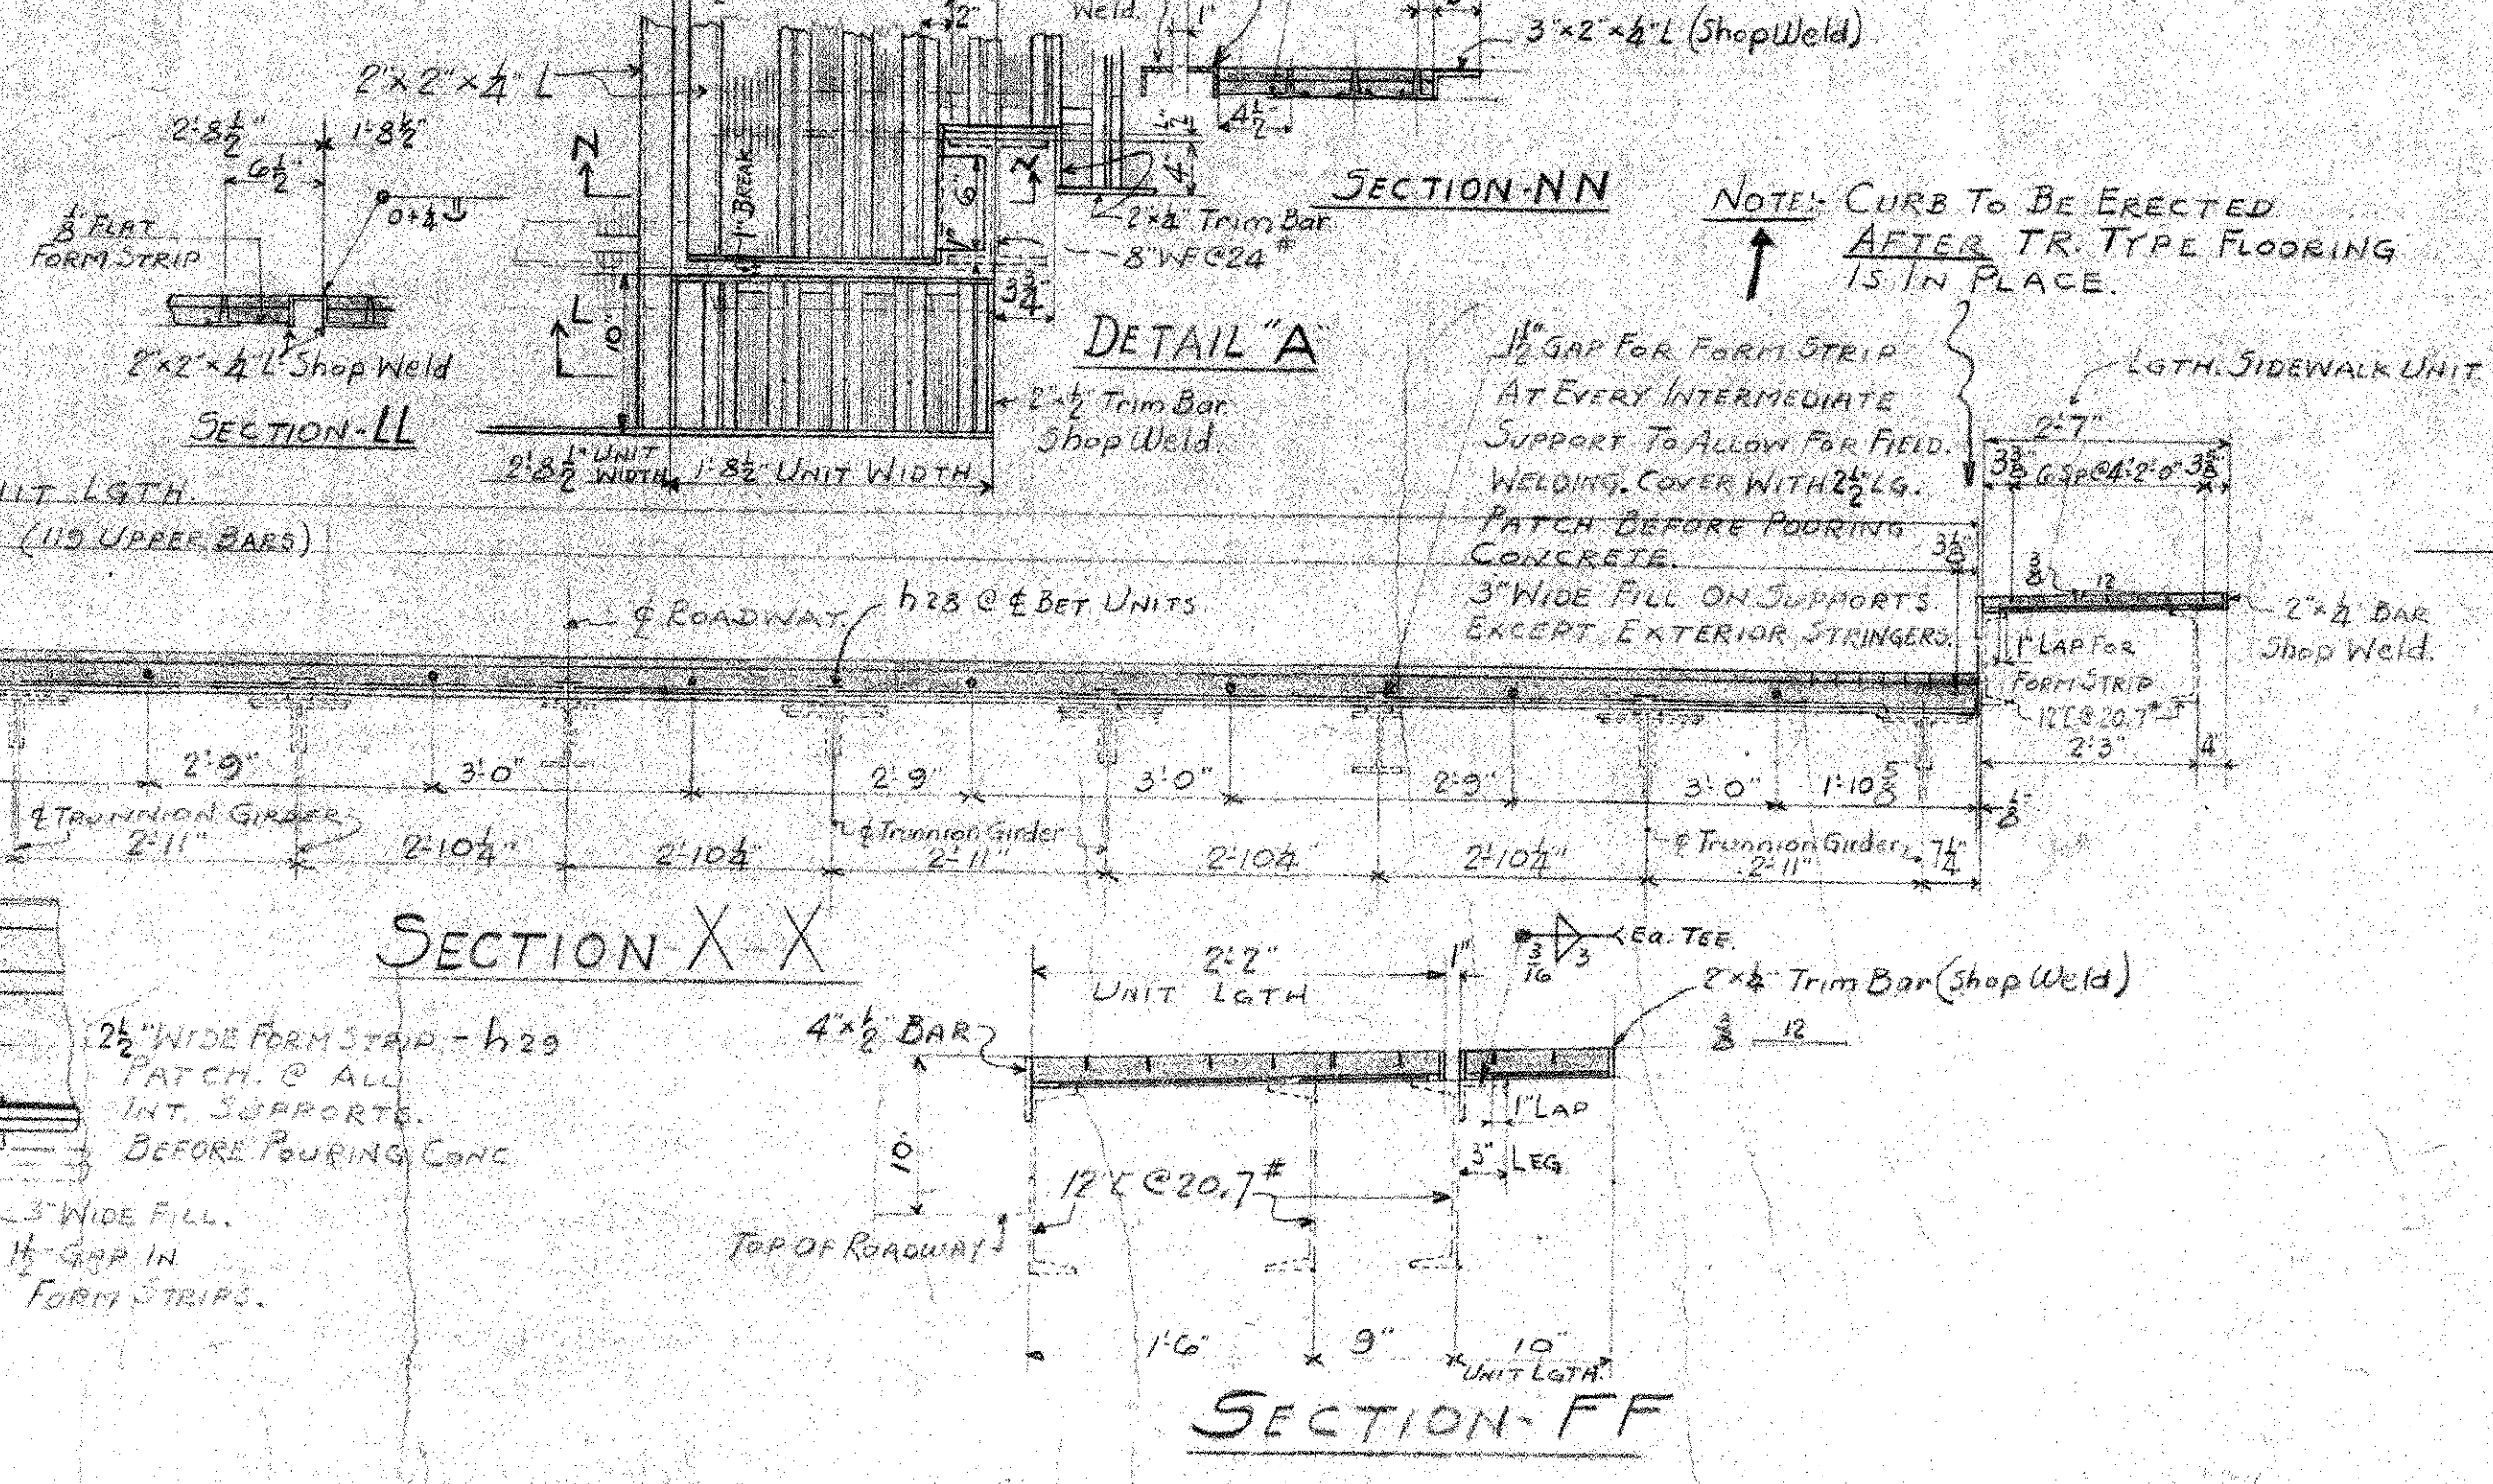 Weld.
2"
1"
3"×2"×¼" L (Shop Weld)
2"×2"×¼" L
2'-8½"
1'-8½"
6½"
⅛" FLAT
FORM STRIP
2"×2"×¼" L Shop Weld
SECTION-LL
N
1" BREAK
L
10"
6"
4"
½"
2"×¼" Trim Bar
8" WF @ 24#
3¾"
DETAIL "A"
2"×½" Trim Bar
Shop Weld.
2'-8½" UNIT
WIDTH
1'-8½" UNIT WIDTH
4½"
SECTION-NN
NOTE:- CURB TO BE ERECTED
AFTER TR. TYPE FLOORING
IS IN PLACE.
1½" GAP FOR FORM STRIP
AT EVERY INTERMEDIATE
SUPPORT TO ALLOW FOR FIELD.
WELDING. COVER WITH 2½" LG.
PATCH BEFORE POURING
CONCRETE.
3" WIDE FILL ON SUPPORTS.
EXCEPT EXTERIOR STRINGERS.
LGTH. SIDEWALK UNIT
2'-7"
3⅜" 6 Sp @ 4"=2'-0" 3⅝"
3⅛"
⅜ 12
2"×¼" BAR
Shop Weld.
1" LAP FOR
FORM STRIP
12"[ @ 20.7#
2'-3"
4"
LGTH.
(119 UPPER BARS)
℄ ROADWAY.
h28 @ ℄ BET. UNITS.
2'-9"
3'-0"
2'-9"
3'-0"
2'-9"
3'-0"
1'-10⅝"
⅛"
℄ TRUNNION GIRDER
℄ Trunnion Girder
℄ Trunnion Girder
2'-11"
2'-10¼"
2'-10¼"
2'-11"
2'-10¼"
2'-10¼"
2'-11"
7¼"
SECTION-X-X
2½" WIDE FORM STRIP - h29
PATCH. @ ALL
INT. SUPPORTS.
BEFORE POURING CONC
3" WIDE FILL.
1½" GAP IN
FORM STRIPS.
2'-2"
UNIT LGTH
1"
3/16 3
Ea. TEE.
2"×¼" Trim Bar (Shop Weld)
⅜ 12
4"×½" BAR
1" LAP
3" LEG
10"
12"[ @ 20.7#
TOP OF ROADWAY
1'-6"
9"
10"
UNIT LGTH.
SECTION-FF